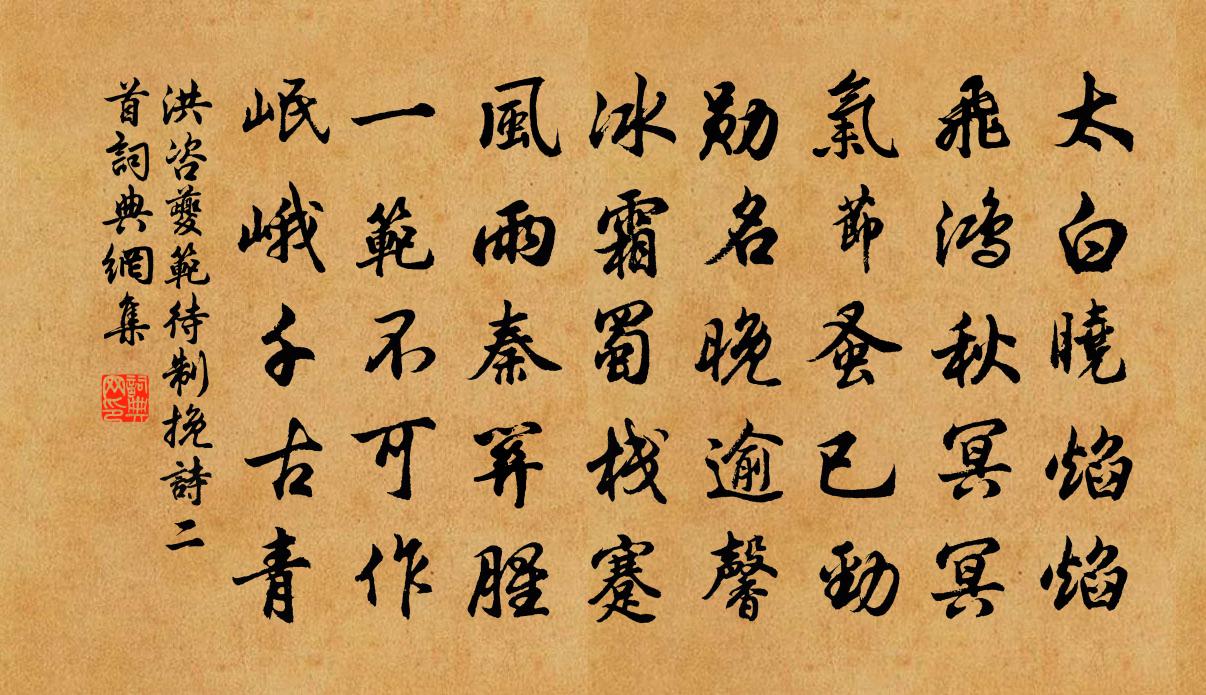 太白曉焰焰
飛鴻秋冥冥
氣節蚤已勁
勛名晚逾馨
冰霜蜀棧蹇
風雨秦筓腥
一範不可作
岷峨千古青
洪咨夔範待制挽詩二
首詞典網集
詞典
网印